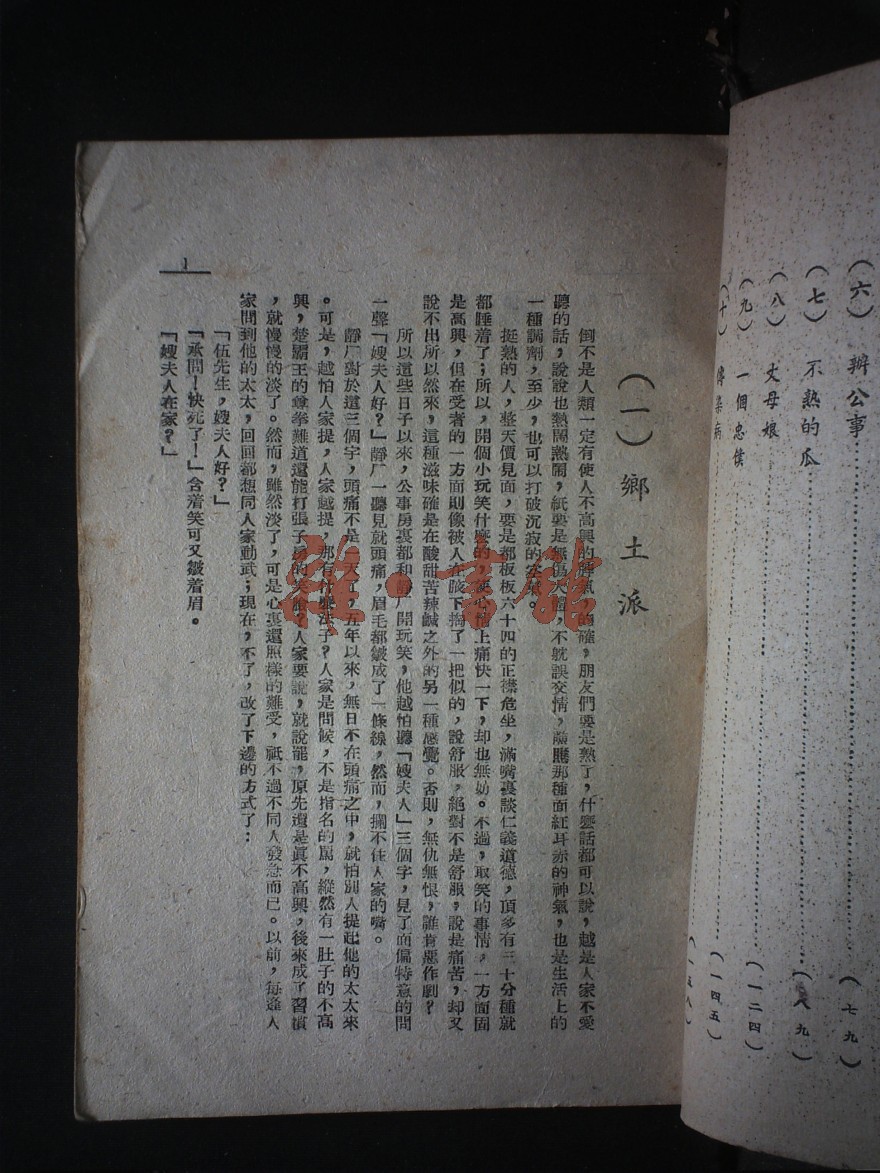 (六) 辦公事……(七九)
(七) 不熟的瓜……(八九)
(八) 丈母娘……(一二四)
(九) 一個忠僕……(一四五)
(十) 傳染病……(一五八)
(一) 鄉土派
倒不是人類一定有使人不高興的脾氣,的確,朋友們要是熟了,什麽話都可以說,越是人家不愛
聽的話,說說也熱鬧熱鬧,紙要是無傷大體,不躭誤交情,賺賺那種面紅耳赤的神氣,也是生活上的
一種調劑,至少,也可以打破沉寂的空氣。
挺熟的人,整天價見面,要是都板板六十四的正襟危坐,滿嘴裏談仁義道德,頂多有三十分種就
都睡着了;所以,開個小玩笑什麽的,使心情上痛快一下,却也無妨。不過,取笑的事情,一方面固
是高興,但在受者的一方面則像被人在腋下掏了一把似的,說舒服,絕對不是舒服,說是痛苦,却又
說不出所以然來,這種滋味確是在酸甜苦辣鹹之外的另一種感覺。否則,無仇無恨,誰肯惡作劇?
所以這些日子以來,公事房裏都和靜厂開玩笑,他越怕聽「嫂夫人」三個字,見了面偏特意的問
一聲「嫂夫人好?」靜厂一聽見就頭痛,眉毛都皺成了一條線,然而,攔不住人家的嘴。
靜厂對於這三個字,頭痛不是一天,五年以來,無日不在頭痛之中,就怕別人提起他的太太來
。可是,越怕人家提,人家越提,那有什麽法子?人家是問候,不是指名的罵,縱然有一肚子的不高
興,楚霸王的拳難道還能打張子房的笑臉?人家要說,就說罷,原先還是眞不高興,後來成了習慣
,就慢慢的淡了。然而,雖然淡了,可是心裏還照樣的難受,祇不過不同人發急而已。以前,每逢人
家問到他的太太,回回都想同人家動武;現在,不了,改了下邊的方式了:
「伍先生,嫂夫人好?」
「承問!快死了!」含着笑可又皺着眉。
「嫂夫人在家?」
1
雜·書館